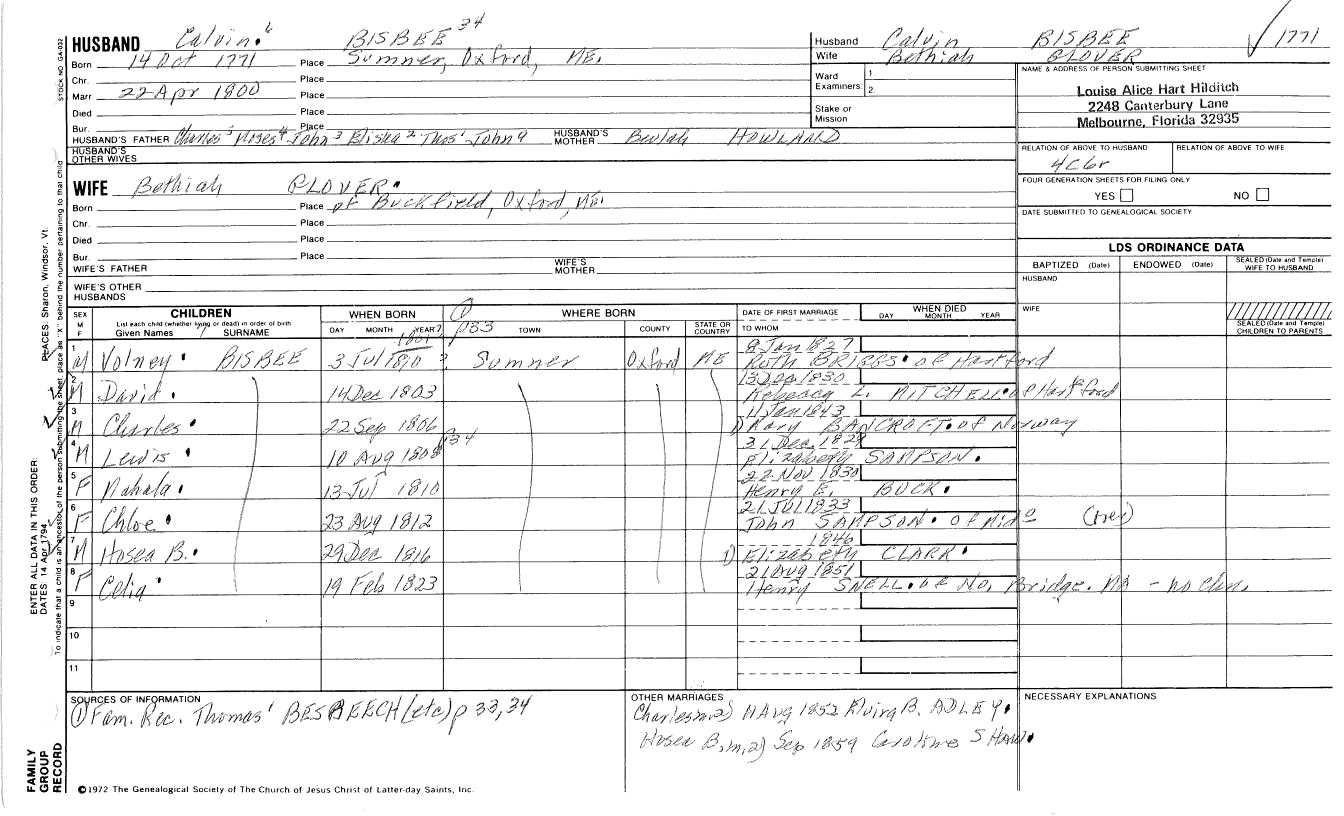 HUSBAND Calvin⁶ BISBEE 34
Born 14 Oct 1771 Place Sumner, Oxford, ME.
Chr. Place
Marr. 22 Apr 1800 Place
Died Place
Bur. Place
HUSBAND'S FATHER Charles⁵ Moses⁴ John³ Elisha² Thos¹ John HUSBAND'S MOTHER Beulah HOWLAND
HUSBAND'S OTHER WIVES
WIFE Bethiah GLOVER.
Born Place of Buckfield, Oxford, Me.
Chr. Place
Died Place
Bur. Place
WIFE'S FATHER WIFE'S MOTHER
WIFE'S OTHER HUSBANDS
Husband Calvin BISBEE ✓ 1771
Wife Bethiah GLOVER
Ward Examiners: 1. 2.
Stake or Mission
NAME & ADDRESS OF PERSON SUBMITTING SHEET
Louise Alice Hart Hilditch
2248 Canterbury Lane
Melbourne, Florida 32935
RELATION OF ABOVE TO HUSBAND RELATION OF ABOVE TO WIFE
4C6r
FOUR GENERATION SHEETS FOR FILING ONLY
YES NO
DATE SUBMITTED TO GENEALOGICAL SOCIETY
LDS ORDINANCE DATA
BAPTIZED (Date) ENDOWED (Date) SEALED (Date and Temple) WIFE TO HUSBAND
HUSBAND
WIFE
SEALED (Date and Temple) CHILDREN TO PARENTS
SEX M F CHILDREN WHEN BORN WHERE BORN DATE OF FIRST MARRIAGE WHEN DIED
List each child (whether living or dead) in order of birth
Given Names SURNAME DAY MONTH YEAR TOWN COUNTY STATE OR COUNTRY TO WHOM DAY MONTH YEAR
1801? p33
1 M Volney. BISBEE 3 Jul 1810 ? Sumner Oxford ME 8 Jan 1827
Ruth BRIGGS. of Hartford
2 M David. 14 Dec 1803 13 Dec 1830
Rebecca L. MITCHELL. of Hartford
3 M Charles. 22 Sep 1806 11 Jan 1843
1) Mary BANCROFT. of Norway
4 M Lewis. 10 Aug 1808 p34 31 Dec. 1829
Elizabeth SAMPSON.
5 F Mahala. 13 Jul 1810 22 Nov 1830
Henry E. BUCK.
6 F Chloe. 23 Aug 1812 21 Jul 1833
John SAMPSON. of Mid
7 M Hosea B. 29 Dec 1816 1846
1) Elizabeth CLARK.
8 F Celia. 19 Feb 1823 21 Aug 1851
Henry SNELL. of No. Bridge. MA - no chn.
9
10
11
SOURCES OF INFORMATION
① Fam. Rec. Thomas¹ BESBEECH (etc) p 33, 34
OTHER MARRIAGES
Charles m. 2) 11 Aug 1852 Elvira B. ADLEY.
Hosea B. m. 2) Sep 1859 Caroline SHAW.
NECESSARY EXPLANATIONS
©1972 The Genealogical Society of The Church of Jesus Christ of Latter-day Saints, Inc.
STOCK NO. GA-032
PLACES: Sharon, Windsor, Vt.
ENTER ALL DATA IN THIS ORDER:
DATES: 14 Apr 1794
To indicate that a child is an ancestor of the person submitting the sheet, place an "X" behind the number pertaining to that child
FAMILY GROUP RECORD